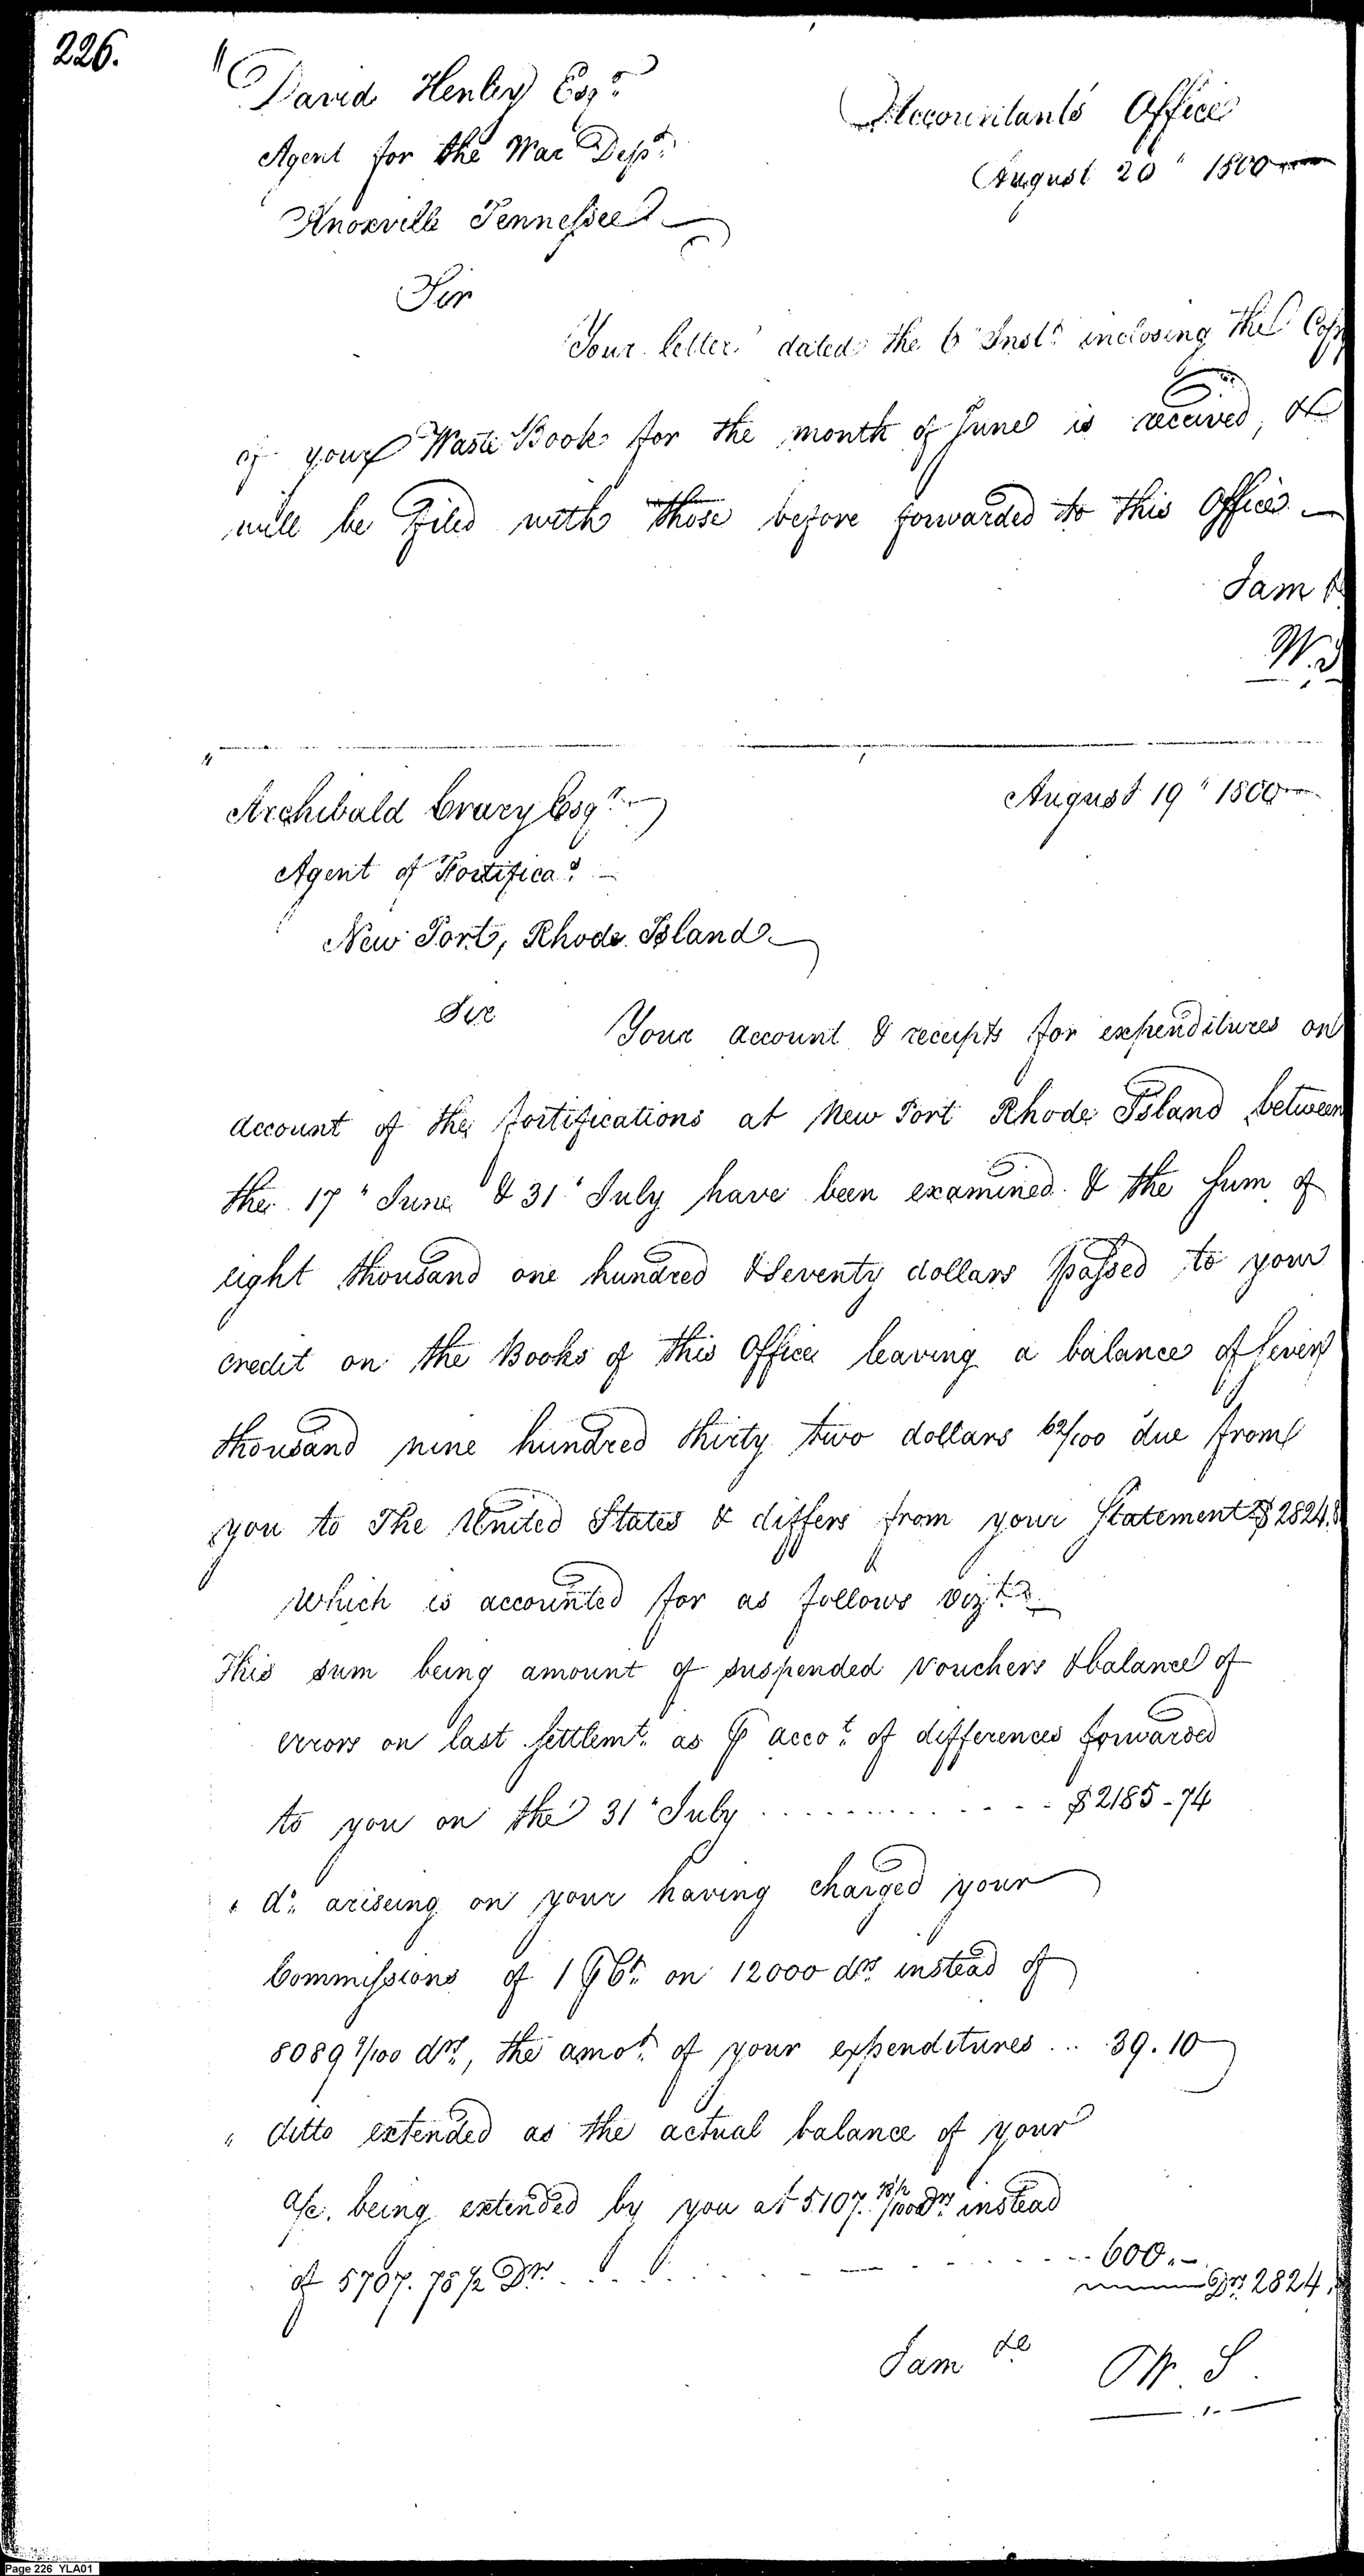 226.
David Henley Esqr.
Accountants Office
Agent for the War Dept.
August 20" 1800
Knoxville Tennessee
Sir
Your letter dated the 6" Inst. inclosing the Copy
of your Waste Book for the month of June is received, &
will be filed with those before forwarded to this Office
I am &
W. S
Archibald Crary Esqr.
August 19" 1800
Agent of Fortificas.
New Port, Rhode Island
Sir
Your account & receipts for expenditures on
account of the fortifications at New Port Rhode Island between
the 17" June & 31" July have been examined & the sum of
eight thousand one hundred & seventy dollars passed to your
credit on the Books of this Office leaving a balance of seven
thousand nine hundred thirty two dollars 62/100 due from
you to The United States & differs from your Statement $2824.8
which is accounted for as follows Vizt.
This sum being amount of suspended Vouchers & balance of
errors on last settlemt. as ⅌ accot. of differences forwarded
to you on the 31" July ............ $2185-74
" do. ariseing on your having charged your
Commissions of 1 ⅌ Ct. on 12000 drs. instead of
8089 9/100 drs., the amot. of your expenditures ... 39.10
" ditto extended as the actual balance of your
a/c. being extended by you at 5107. 78½/100 Drs. instead
of 5707. 78½ Drs. ........ 600.-
Drs. 2824.
I am &c
W. S.
Page 226 YLA01